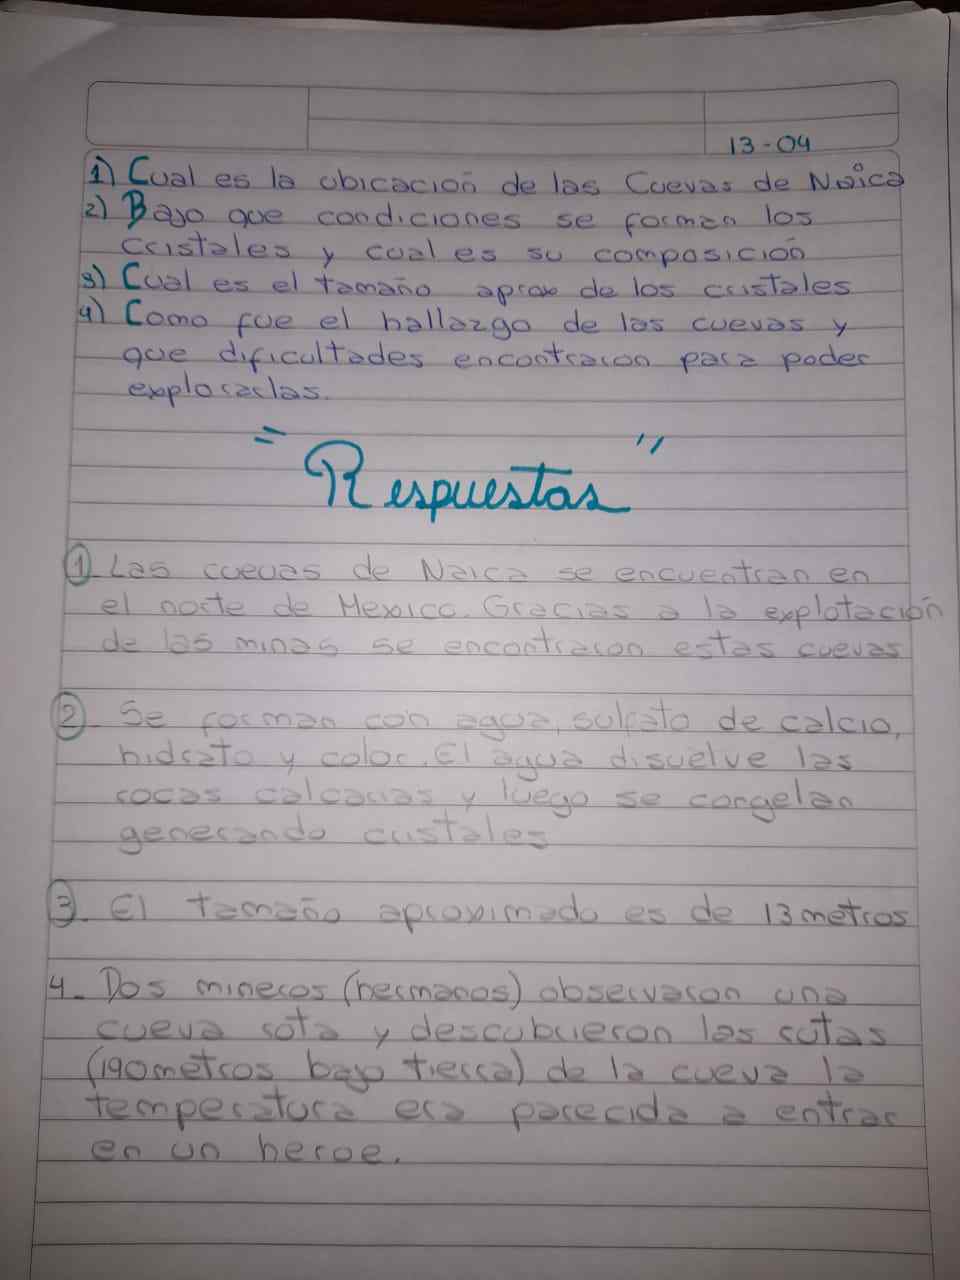 13-04
1) Cual es la ubicación de las Cuevas de Naica
2) Bajo que condiciones se forman los
cristales y cual es su composición
3) Cual es el tamaño aprox de los cristales
4) Como fue el hallazgo de las cuevas y
que dificultades encontraron para poder
explorarlas.
"Respuestas"
1. Las cuevas de Naica se encuentran en
el norte de Mexico. Gracias a la explotación
de las minas se encontraron estas cuevas
2. Se forman con agua, sulfato de calcio,
hidrato y color. El agua disuelve las
rocas calcarias y luego se congelan
generando cristales
3. El tamaño aproximado es de 13 metros
4. Dos mineros (hermanos) observaron una
cueva rota y descubrieron las rutas
(190 metros bajo tierra) de la cueva la
temperatura era parecida a entrar
en un heroe.